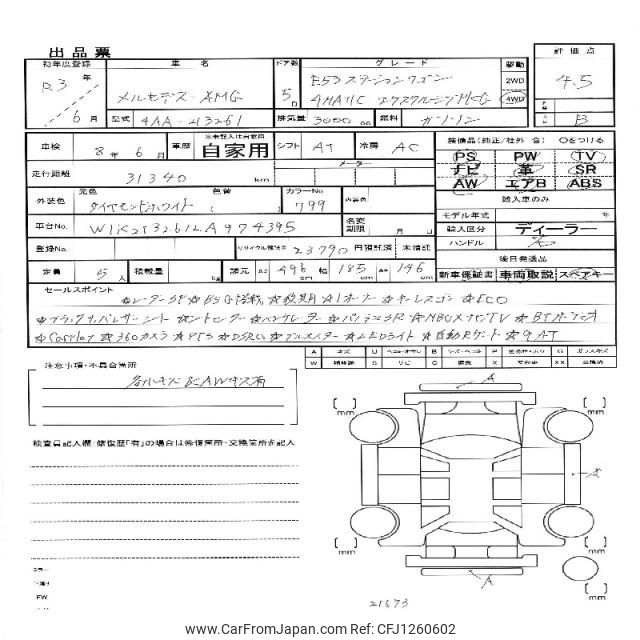 出品票
初年度登録 車名 ドア数 グレード 駆動 評価点
R3年 メルセデス・AMG 5D E53ステーションワゴン 2WD 4.5
4MATIC エクスクルーシブPKG 4WD
6月 型式 4AA-213261 排気量 3000cc 燃料 ガソリン B
車検 8年6月 車歴 ※未記入は自家用 自家用 シフト AT 冷房 AC
装備品(純正/社外 含) Oをつける
PS PW TV
ナビ 革 SR
AW エアB ABS
走行距離 31340 km メーター
外装色 元色 ダイヤモンドホワイト 色替 ( ) カラーNo 799 内装色
輸入車のみ
モデル年式 年
車台No. W1K2132612A974395 名変期限 月 日
輸入区分 ディーラー
ハンドル 左
登録No. リサイクル預託金 23790 円預託済 未預託
後日発送品
定員 5人 積載量 kg 諸元 長さ 496 幅 185cm 高さ 146cm
新車保証書 車両取説 スペアキー
セールスポイント
★レーダーSP ★BSG搭載 ★後期 ★1オーナー ★キーレスゴー ★ECO
★ブラックナッパレザーシート ★シートヒーター ★ベンチレーター ★パノラミックSR ★MBUX ナビTV ★BTオーディオ
★Carplay ★360カメラ ★PTS ★DSRC ★ブルメスター ★LEDライト ★自動Rゲート ★9AT
A キズ U ヘコ・オサレ B キズ・ヘコ P G ガラスキズ
W 補修跡 S サビ C 腐食 X 要交換 XX 交換済
注意事項・不具合箇所
各小キズ AWキズ有
検査員記入欄:修復歴「有」の場合は修復箇所・交換箇所を記入
[ ] mm
[ ] mm
[ ] mm
[ ] mm
A
A
カラー
下廻り
PW
21673
www.CarFromJapan.com - CFJ1260602